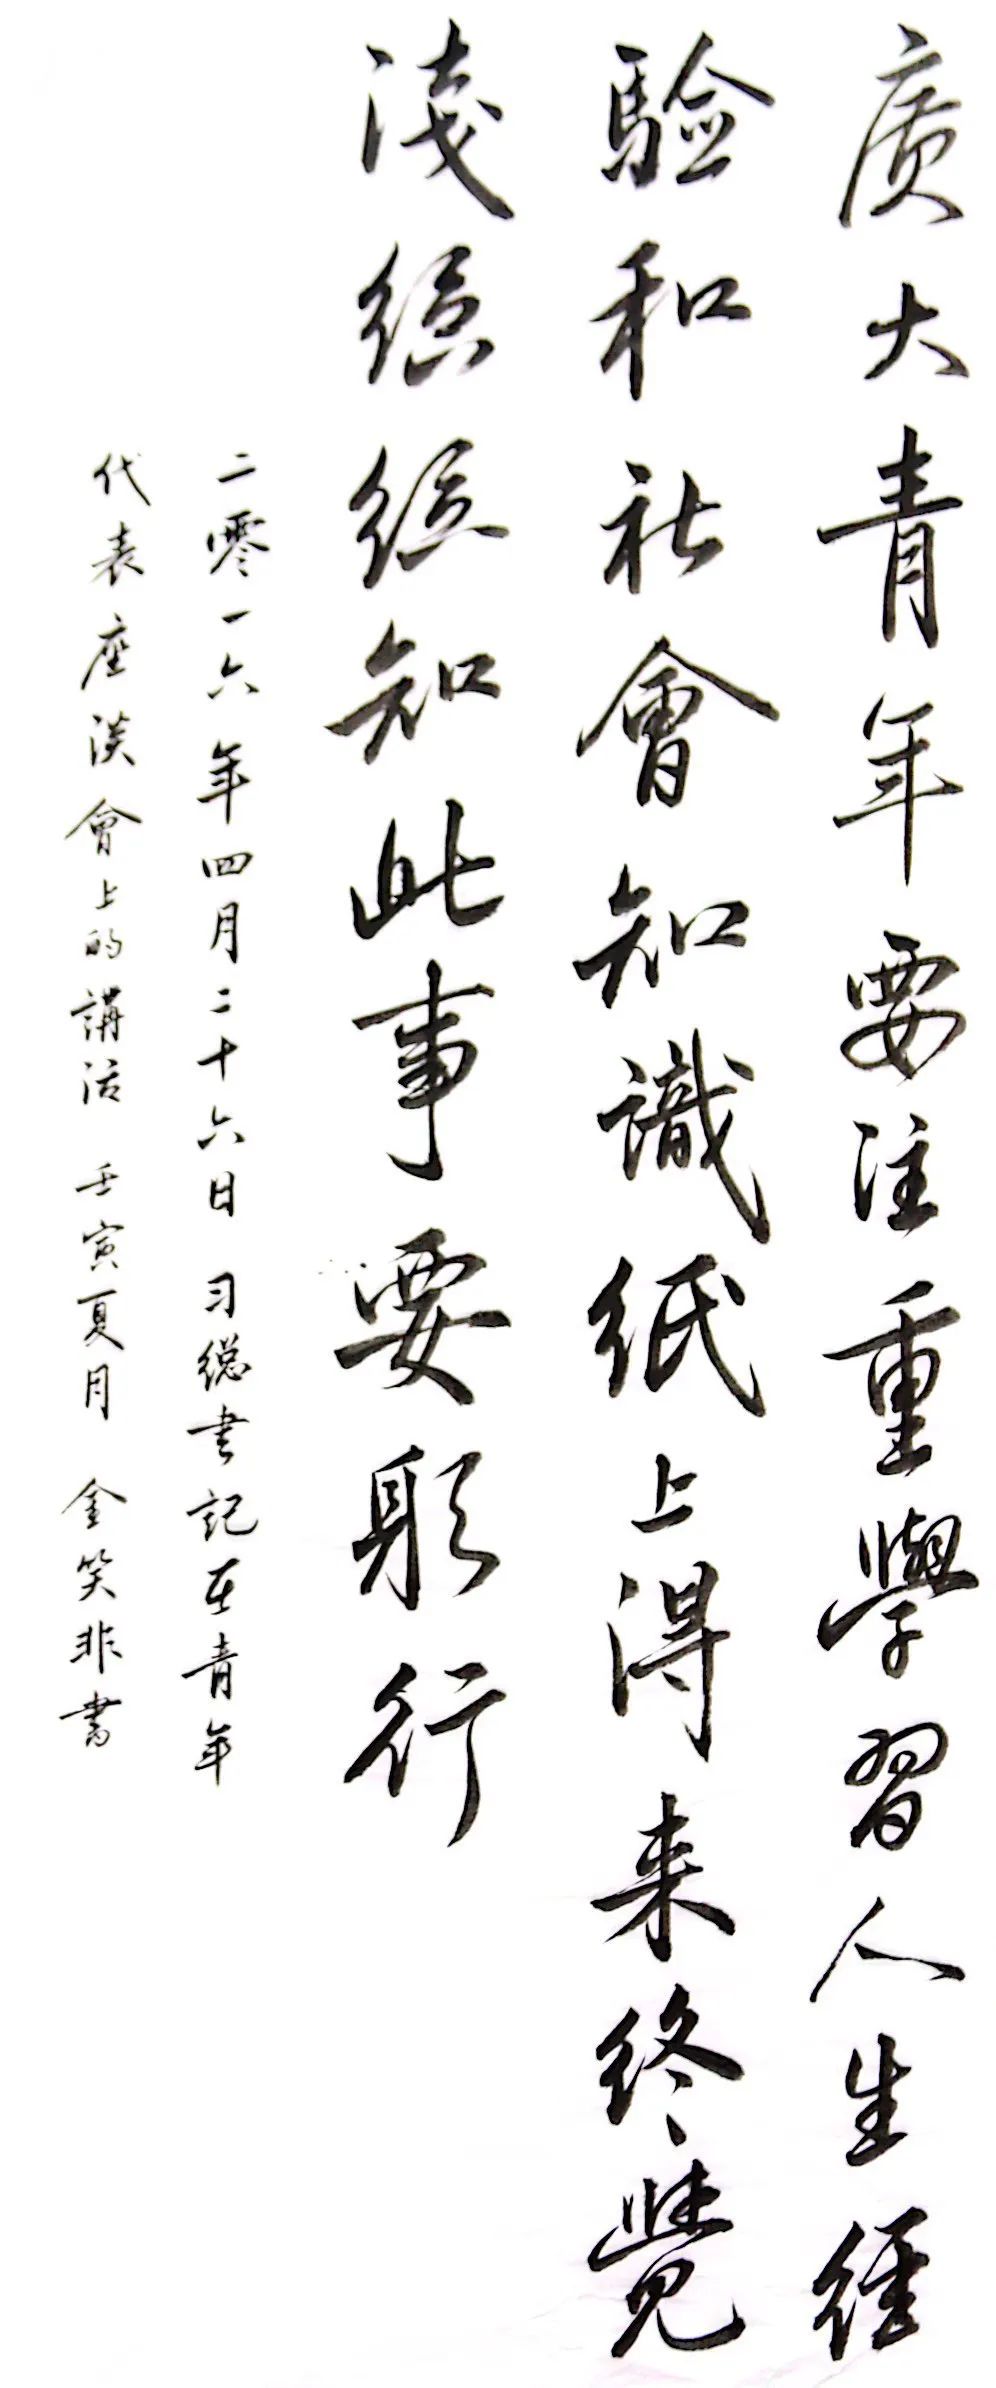 廣大青年要注重學習人生經
驗和社會知識紙上得来終覺
淺知此事要躬行
二零一六年四月二十六日 习總書記在青年
代表座談會上的講話 壬寅夏月 金笑非書